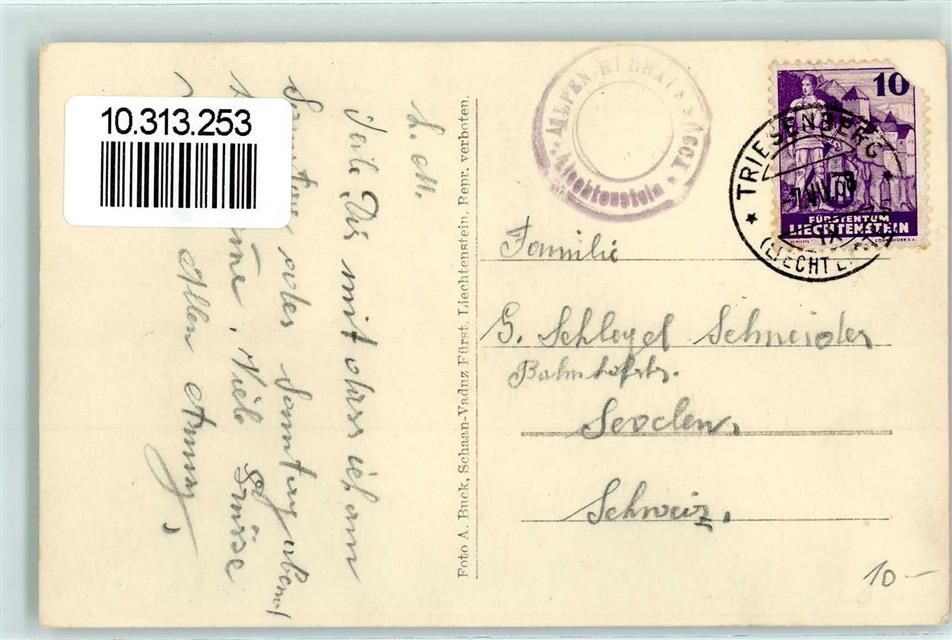 10.313.253
L. M.
Teile Dir mit dass ich am
Samstag oder Sonntag abend
Viele Grüsse
Allen Anny
Foto A. Buck, Schaan-Vaduz Fürst. Liechtenstein. Repr. verboten.
ALLPEN-KURHAUS
Liechtenstein
10
FÜRSTENTUM
LIECHTENSTEIN
COURVOISIER S.A.
TRIESENBERG
(LIECHTE
Familie
G. Schlegel Schneider
Bahnhofstr.
Sevelen,
Schweiz.
10-